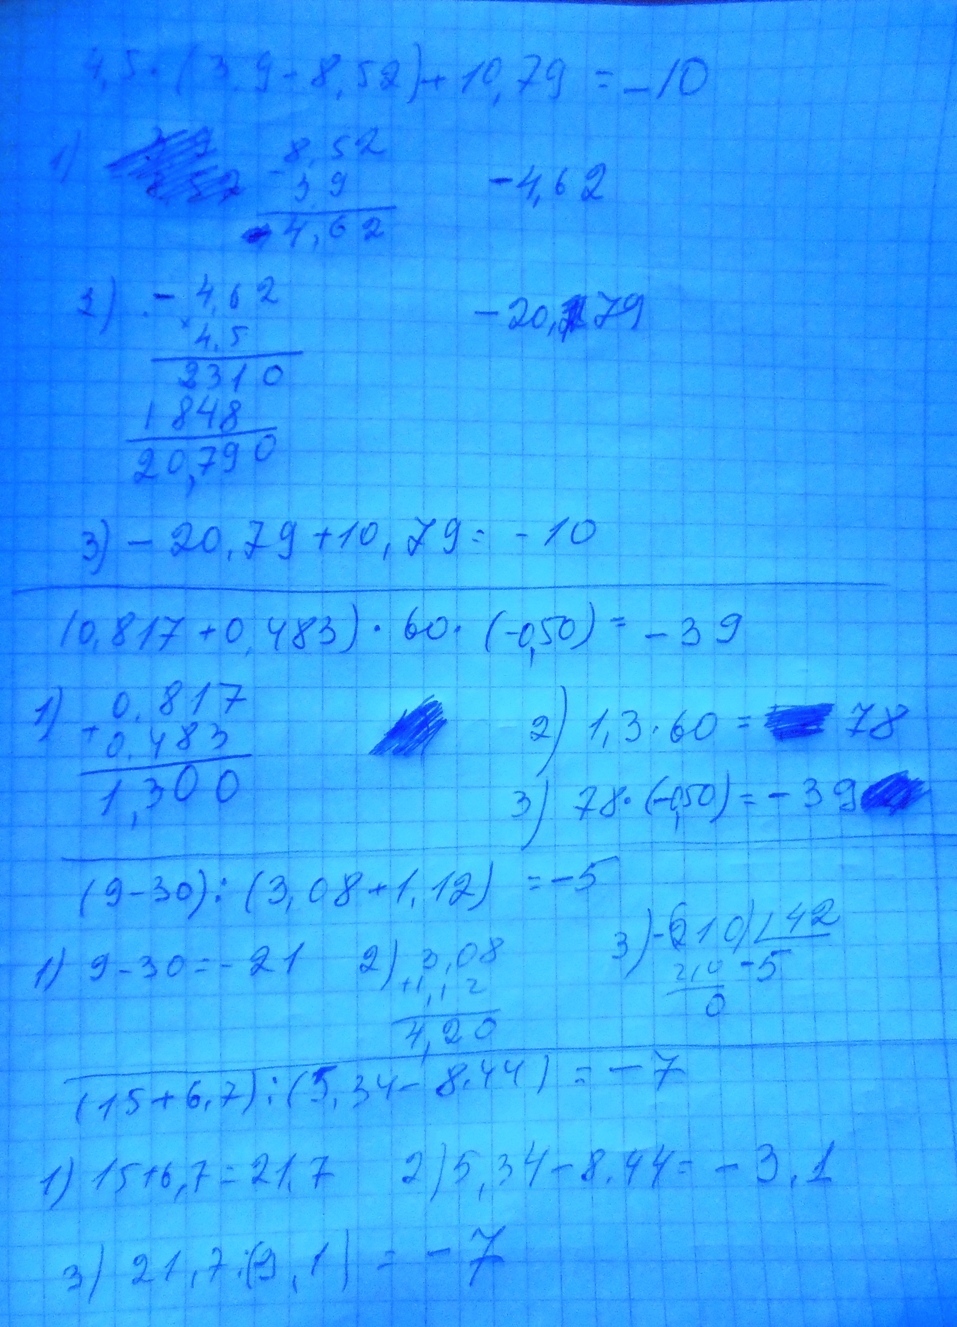 4,5·(3,9-8,52)+10,79=-10
1) -8,52 -4,62
3,9
4,62
2) -4,62 -20,79
×4,5
2310
1848
20,790
3) -20,79+10,79=-10
(0,817+0,483)·60·(-0,50)=-39
1) 0,817 2) 1,3·60=78
+0,483
1,300 3) 78·(-0,50)=-39
(9-30):(3,08+1,12)=-5
1) 9-30=-21 2) 3,08 3) -210 42
+1,12 210 -5
4,20 0
(15+6,7):(5,34-8,44)=-7
1) 15+6,7=21,7 2) 5,34-8,44=-3,1
3) 21,7:(3,1)=-7